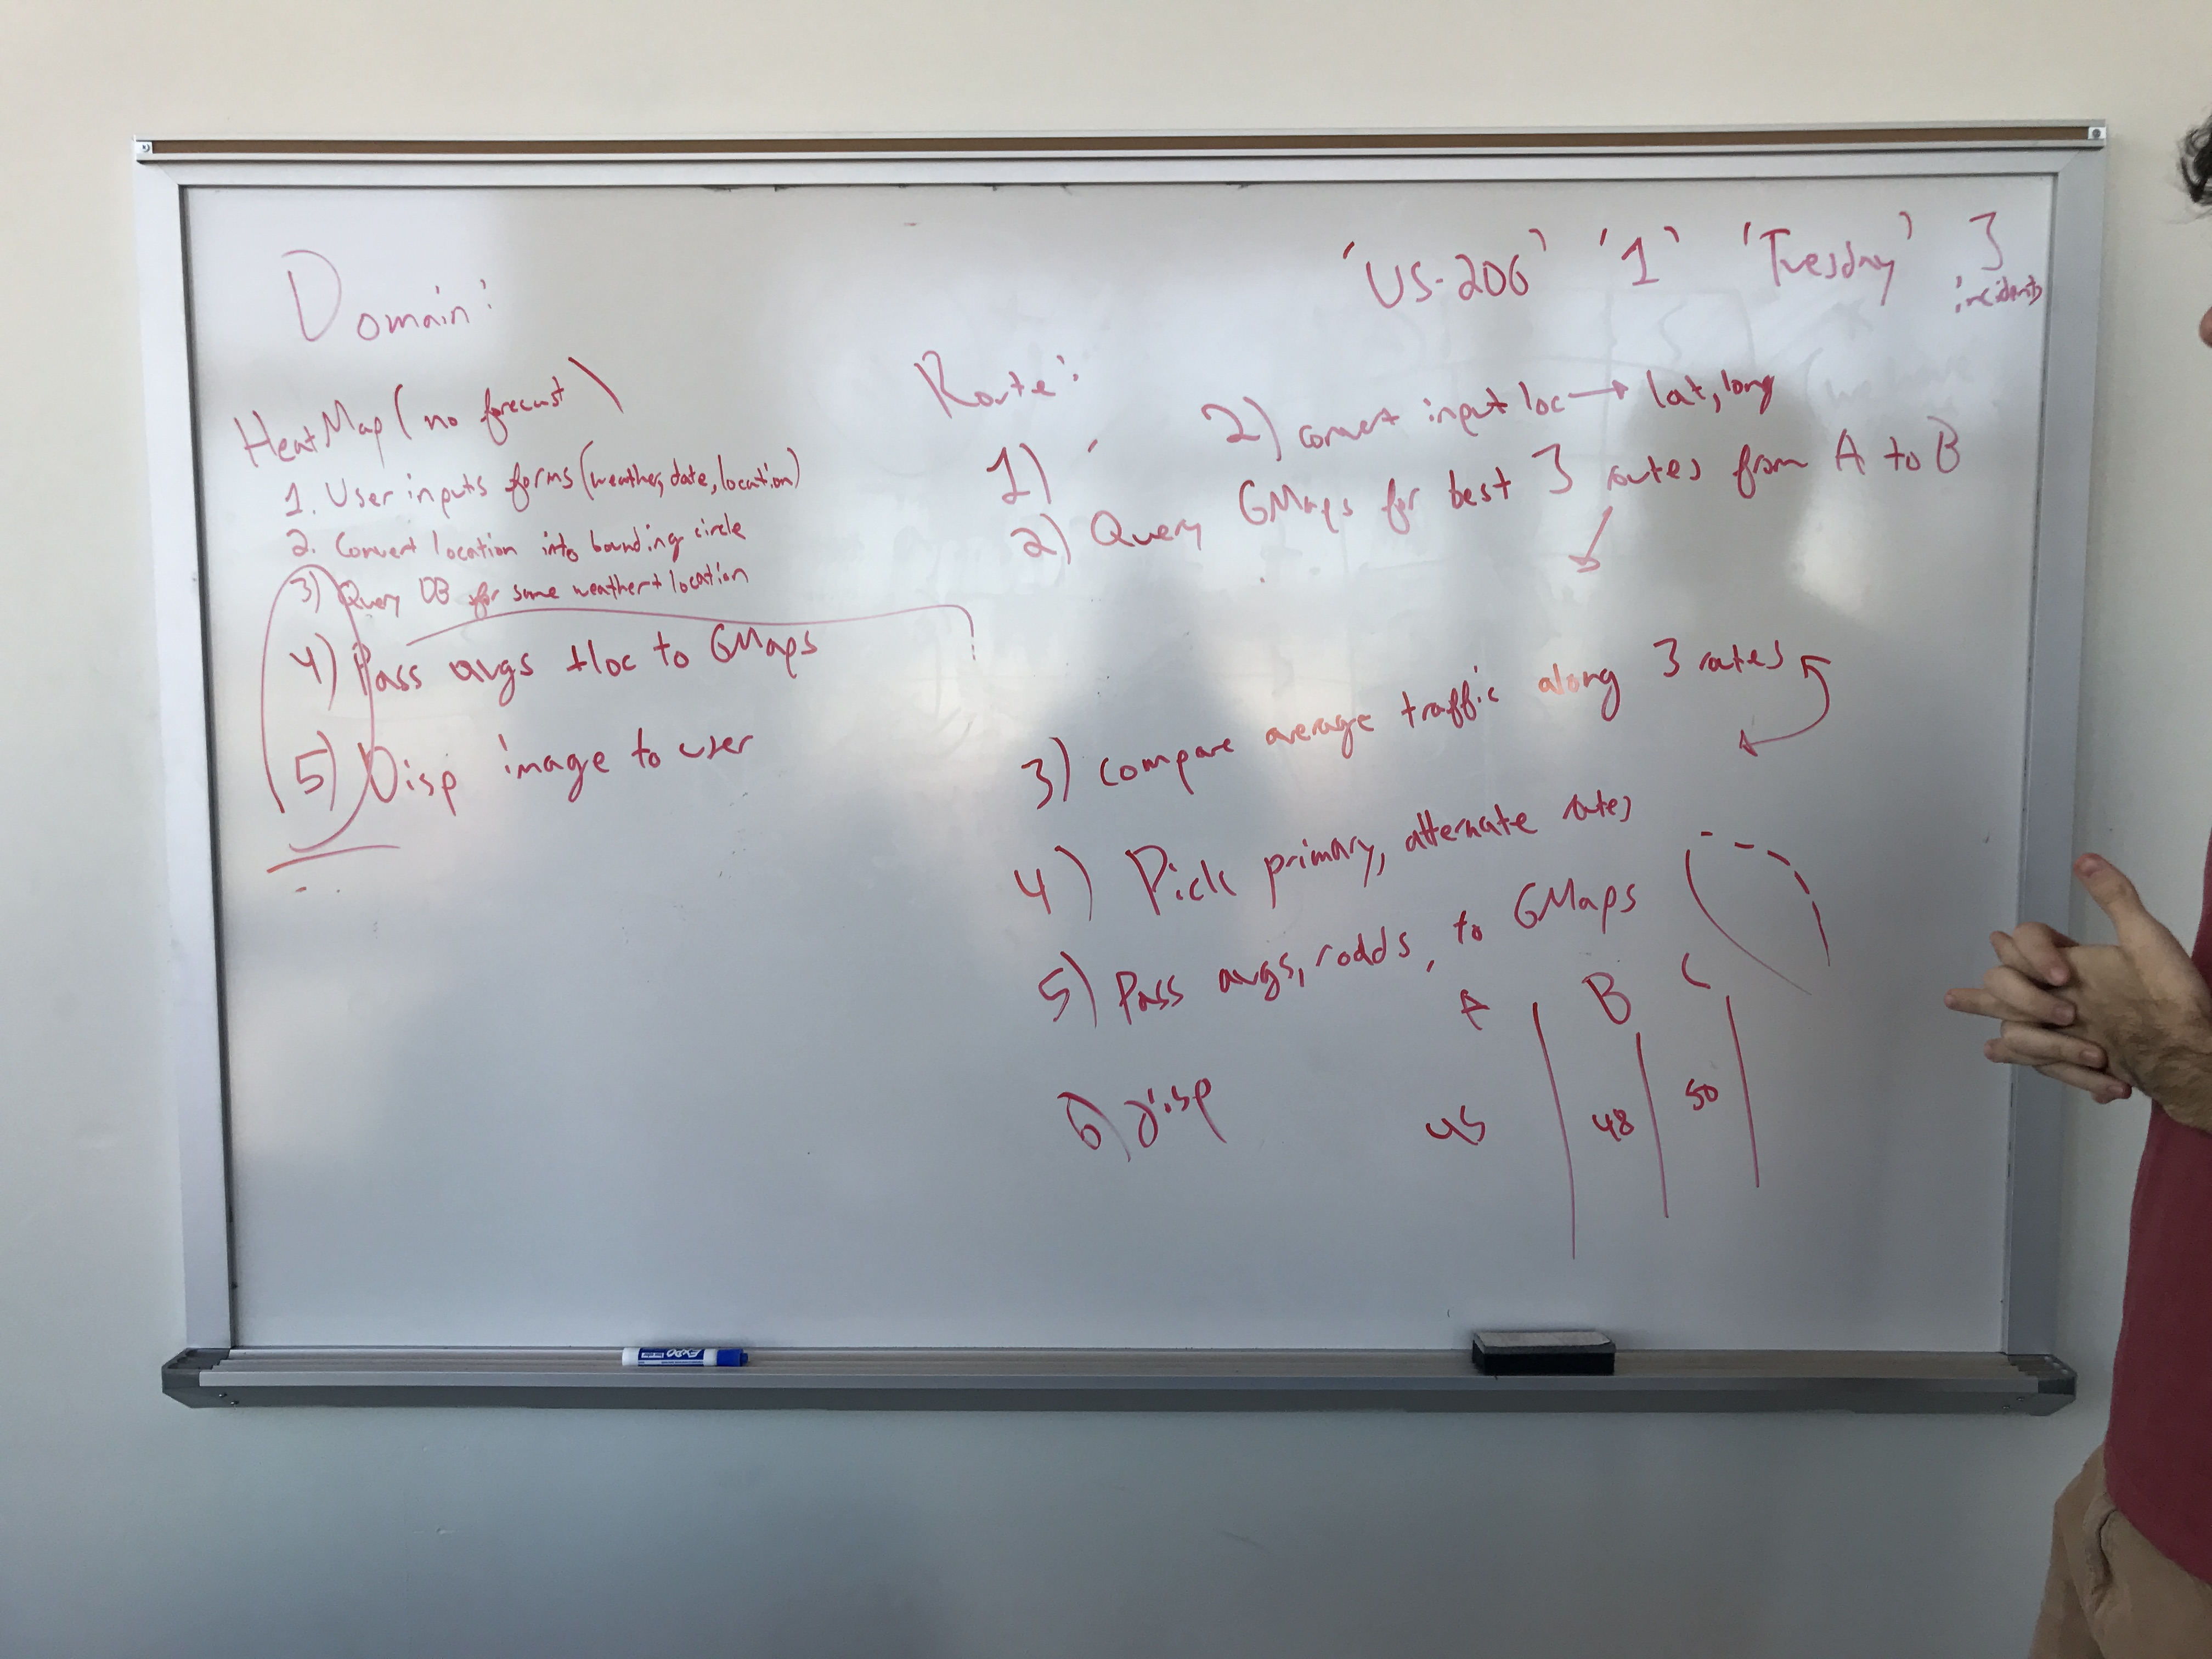 Domain:
HeatMap (no forecast)
1. User inputs forms (weather, date, location)
2. Convert location into bounding circle
3) Query DB for same weather + location
4) Pass avgs + loc to GMaps
5) Disp image to user
'US-206' '1' 'Tuesday' 3
incidents
Route:
1)
2) convert input loc → lat, long
2) Query GMaps for best 3 routes from A to B
3) compare average traffic along 3 routes
4) Pick primary, alternate routes
5) Pass avgs, roads, to GMaps
6) Disp
A B C
45 48 50
EXPO